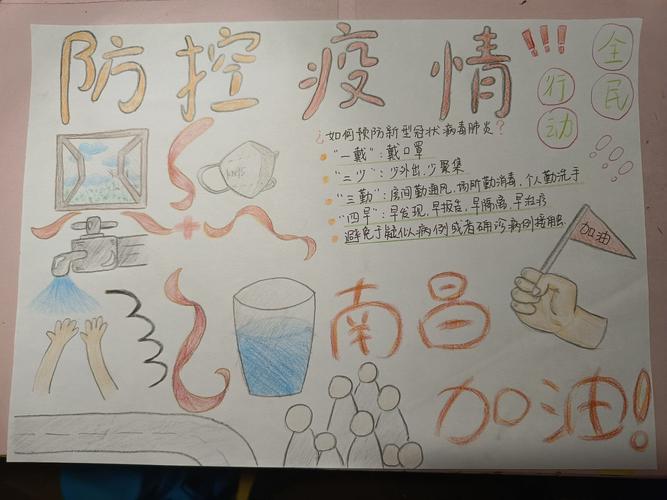 防控疫情!!!
全民
行动
¿如何预防新型冠状病毒肺炎?
"一戴":戴口罩
"三少":少外出,少聚集
"三勤":房间勤通风,场所勤消毒,个人勤洗手
"四早":早发现,早报告,早隔离,早治疗
避免于疑似病例或者确诊病例接触
加油
南昌
加油!